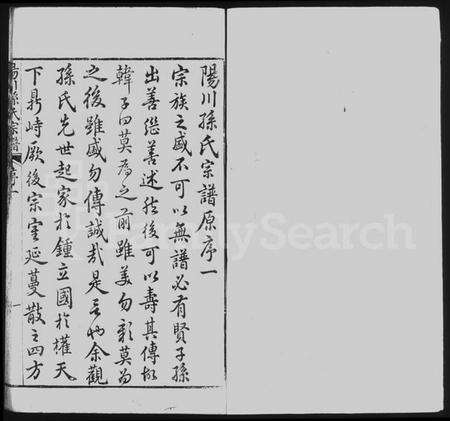 陽川孫氏宗譜原序一
宗族之盛不可以無譜必有賢子孫
出善繼善述然後可以壽其傳故
韓子曰莫為之前雖美勿彰莫為
之後雖盛勿傳誠哉是言也余觀
孫氏先世起家於鍾立國於權天
下鼎峙厥後宗室延蔓散之四方
陽川孫氏宗譜 序 一
FamilySearch